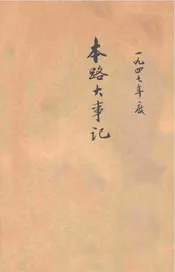 一九四七年度
本路大事记